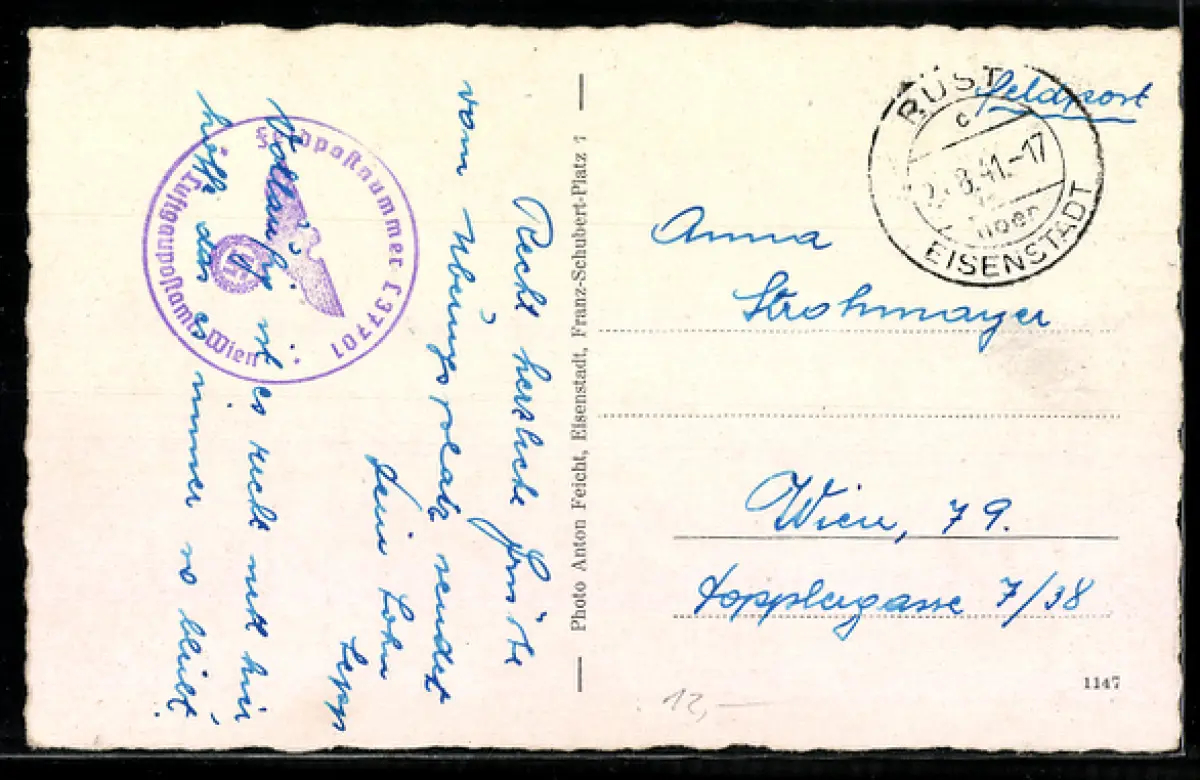 Recht herzliche Grüße
vom Übungsplatz sendet
Dein Sohn
Sepp
Vorläufig ist es recht nett hier
hoff das es immer so bleibt.
Feldpostnummer L 37701
Luftgaupostamt Wien
Photo Anton Feicht, Eisenstadt, Franz-Schubert-Platz 1
Feldpost
RUST
c
8.41.-17
EISENSTADT
Anna
Strohmayer
Wien, 79.
Kopplergasse 7/38
1147
12,–